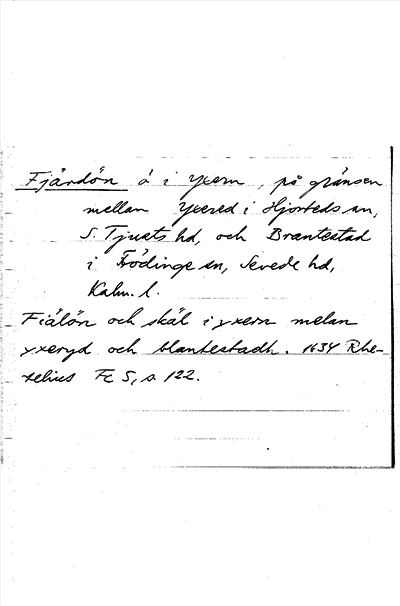 Fjärdön ö i Yxern, på gränsen
mellan Yxered i Hjorteds sn,
S. Tjusts hd, och Brantestad
i Frödinge sn, Sevede hd,
Kalm. l.
Fiälön och skäl i yxern melan
yxeryd och blantestadh. 1634 Rhe-
zelius Fc 5, s. 122.